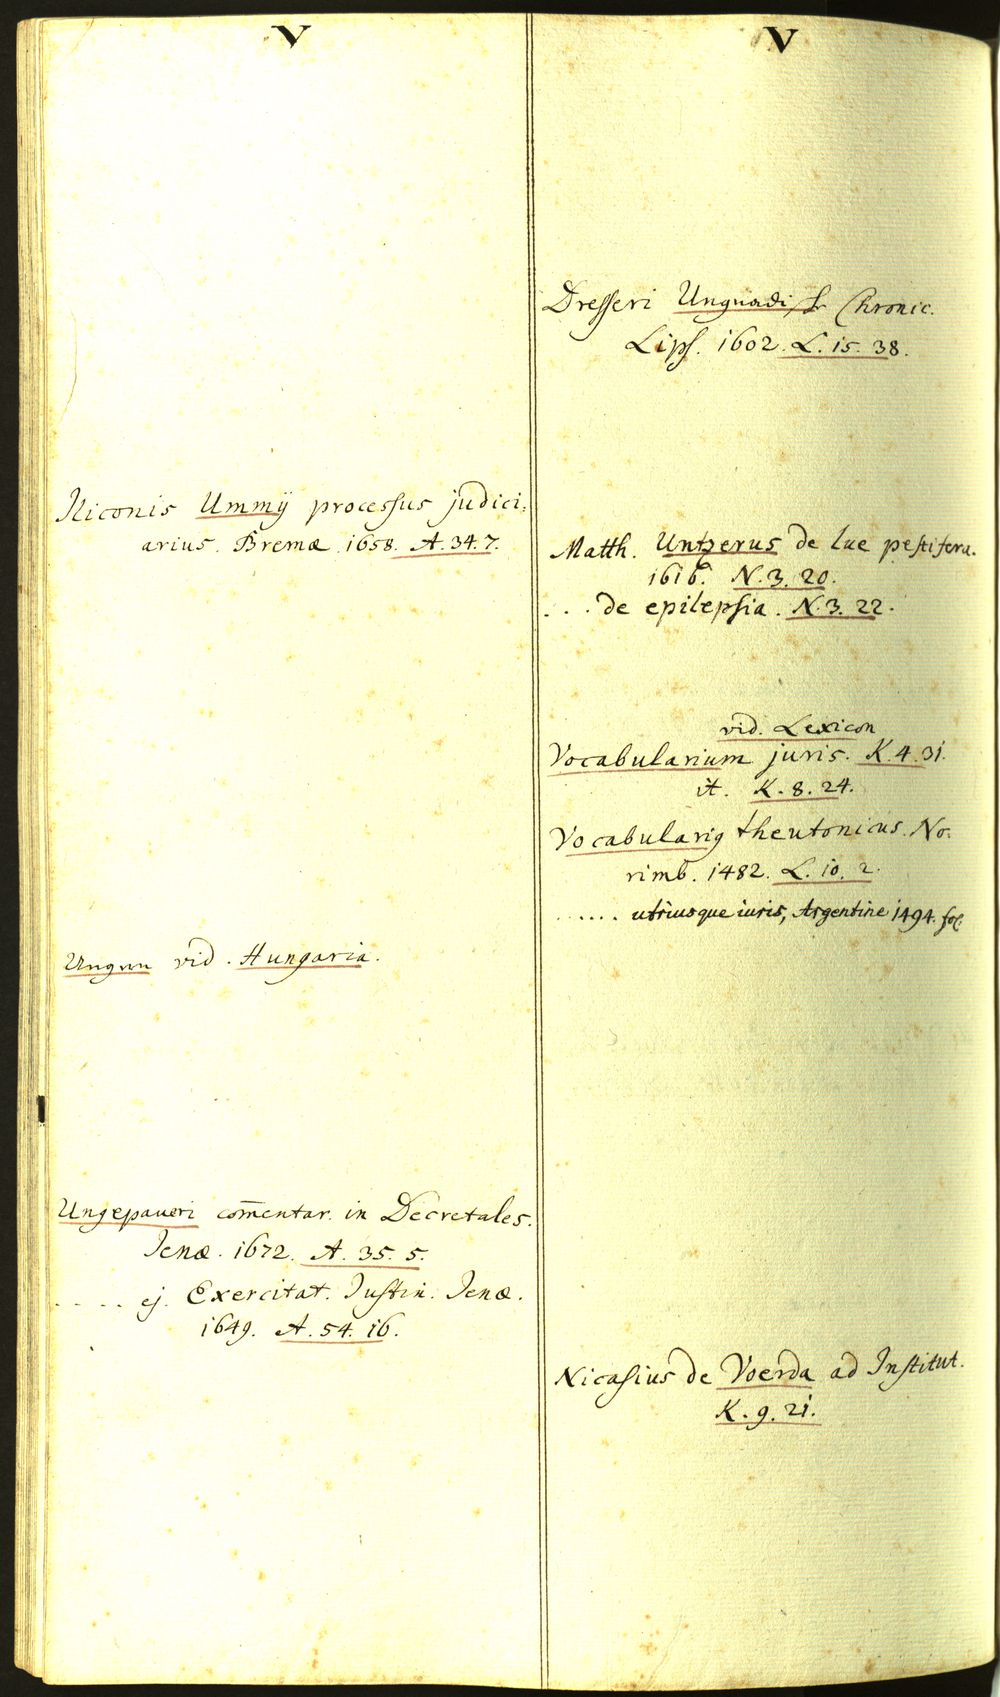 V
Niconis Ummij processus judici:
arius. Bremæ 1658. A. 34. 7.
Ungern vid. Hungaria.
Ungepaueri com̄entar. in Decretales.
Jenæ. 1672. A. 35. 5.
..... ej. Exercitat. Justin. Jenæ.
1649. A. 54. 16.
V
Dresseri Chronic.
Lips. 1602. L. 15. 38.
Matth. Untzerus de lue pestifera.
1616. N. 3. 20.
... de epilepsia. N. 3. 22.
vid. Lexicon
Vocabularium juris. K. 4. 31.
it. K. 8. 24.
Vocabularig theutonicus. No:
rimb. 1482. L. 10. 2.
...... utriusque iuris, Argentine 1494. fol.
Nicasius de Voerda ad Institut.
K. 9. 21.